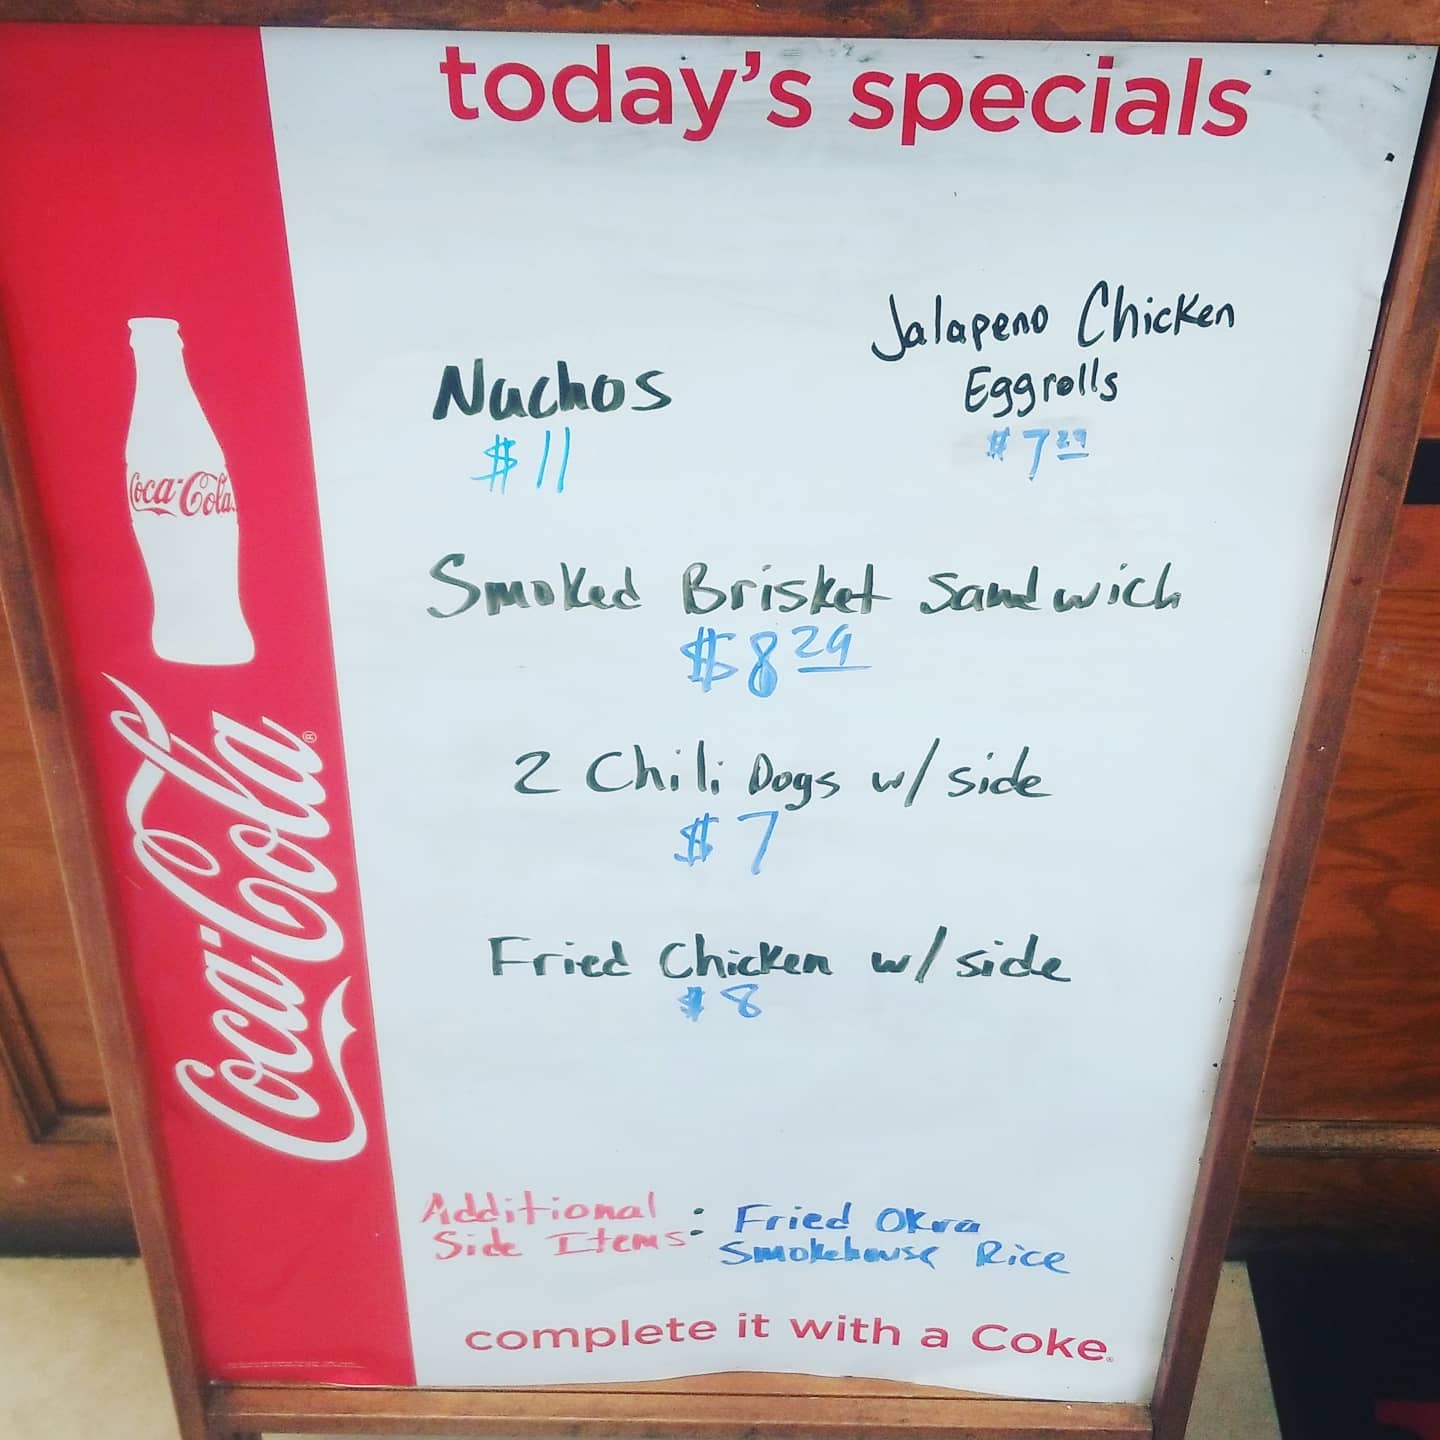 today's specials
Nachos
$11
Jalapeno Chicken
Eggrolls
$7 29
Smoked Brisket Sandwich
$8 29
2 Chili Dogs w/ side
$7
Fried Chicken w/ side
$8
Additional
Side Items :
Fried Okra
Smokehouse Rice
complete it with a Coke.
Coca-Cola
Coca-Cola®